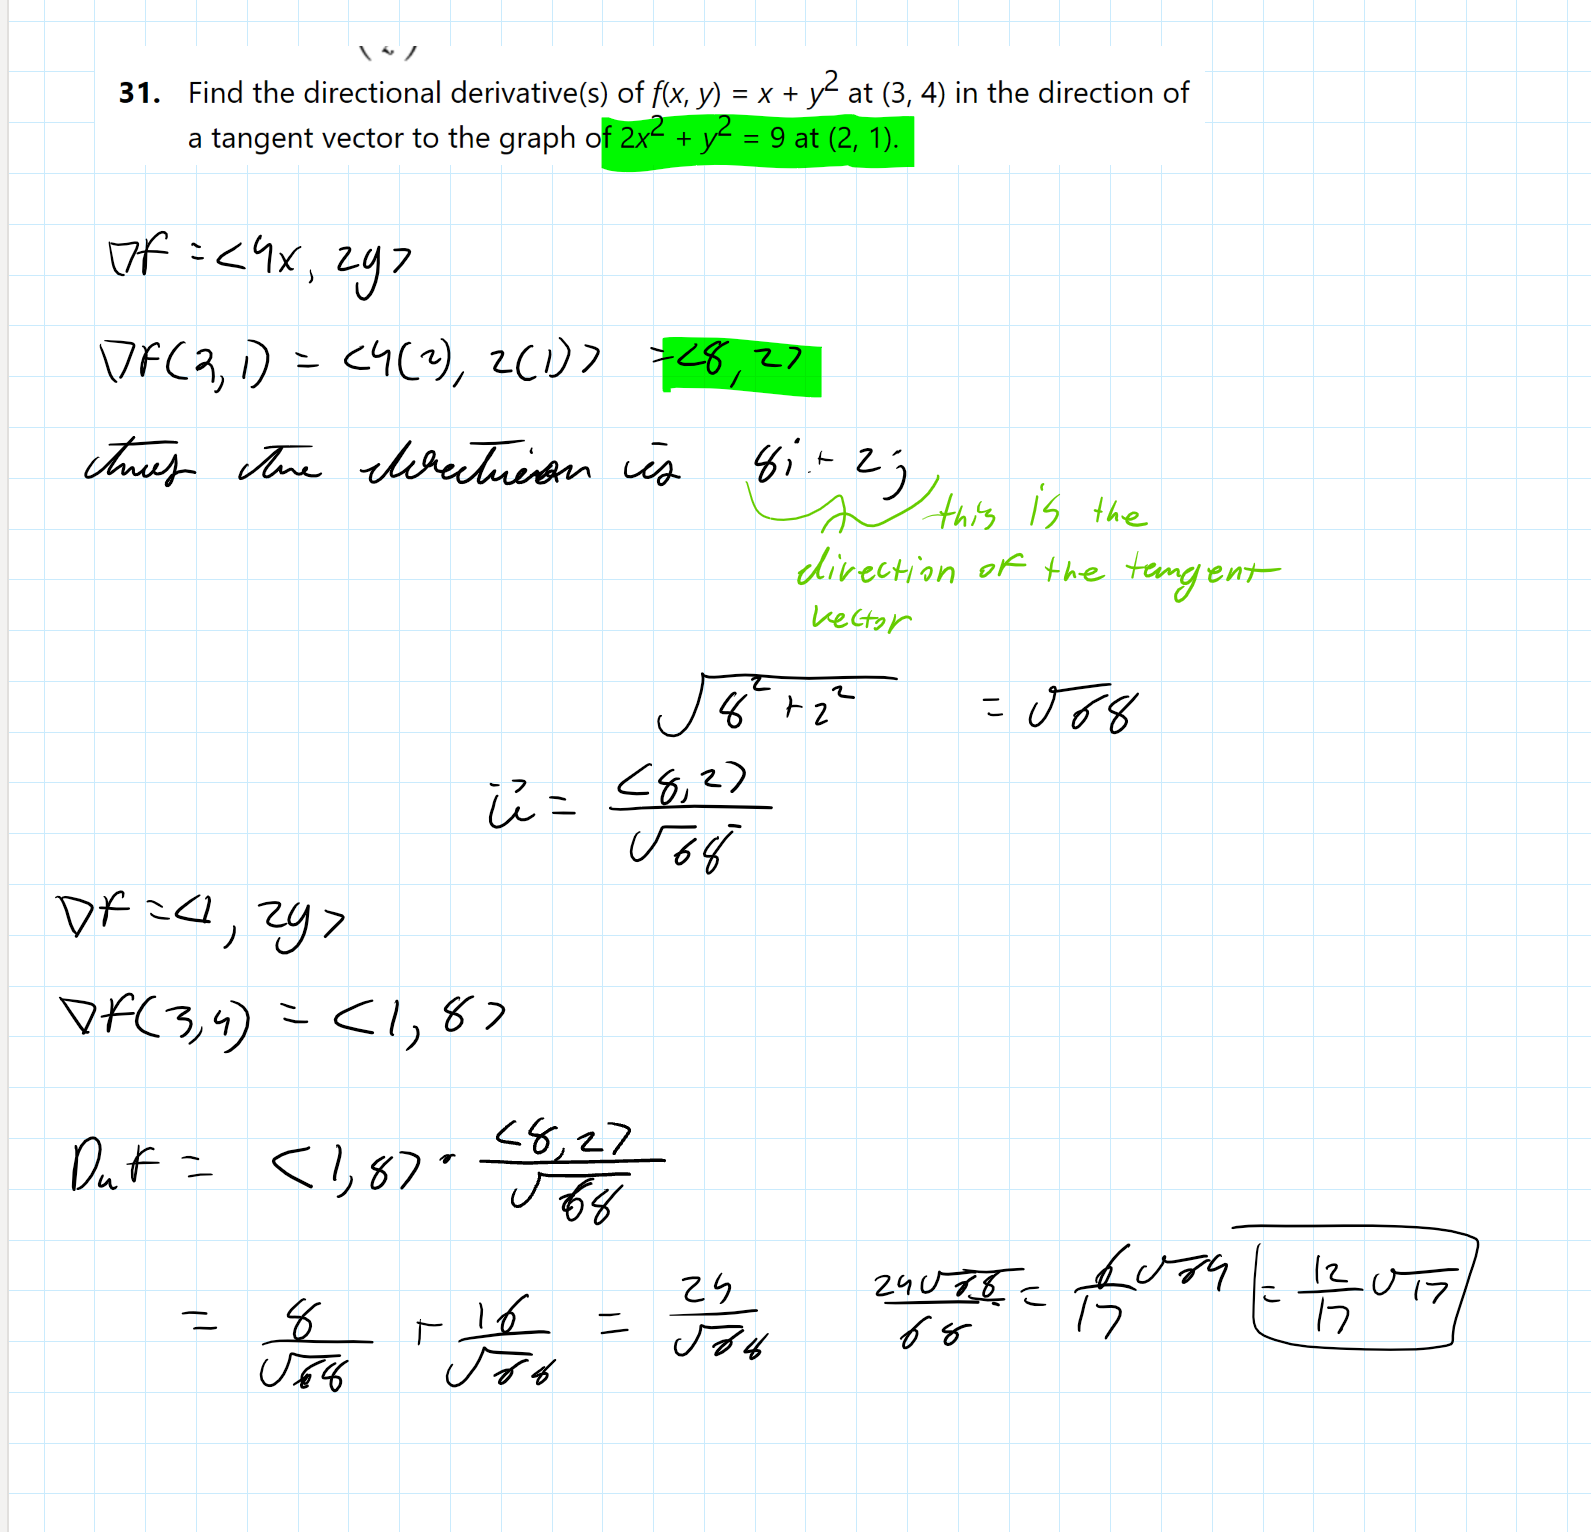 31. Find the directional derivative(s) of f(x, y) = x + y² at (3, 4) in the direction of
a tangent vector to the graph of 2x² + y² = 9 at (2, 1).
∇f = <4x, 2y>
∇f(2,1) = <4(2), 2(1)> = <8, 2>
thus the direction is 8i + 2j
this is the
direction of the tangent
vector
√(8² + 2²) = √68
u⃗ = <8,2> / √68
∇f = <1, 2y>
∇f(3,4) = <1, 8>
Duf = <1,8> · <8,2> / √68
= 8/√68 + 16/√68 = 24/√68 24√68/68 = 6√64/17 = 12/17 √17